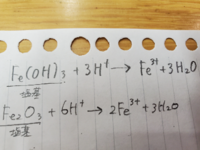 Fe(OH)₃ + 3H⁺ → Fe³⁺ + 3H₂O
Fe₂O₃ + 6H⁺ → 2Fe³⁺ + 3H₂O